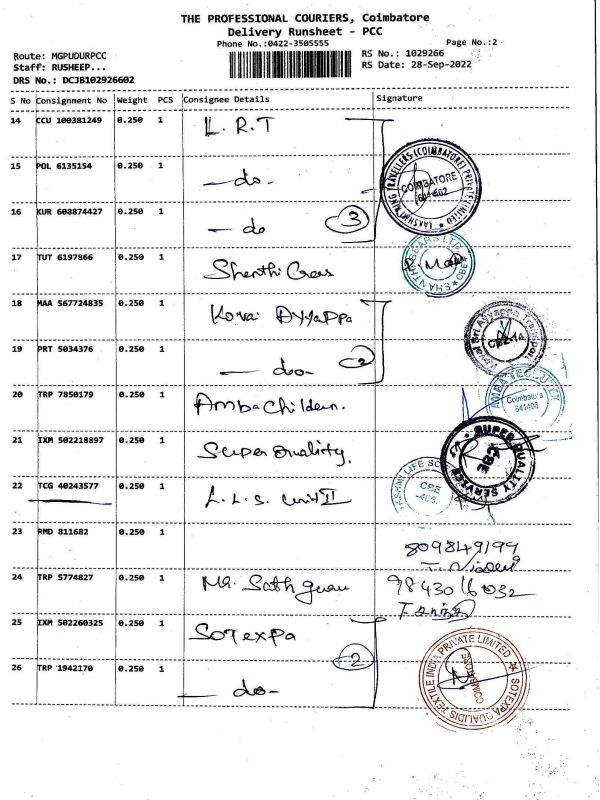 THE PROFESSIONAL COURIERS, Coimbatore
Delivery Runsheet - PCC
Phone No.:0422-3505555
Page No.:2
Route: MGPUDURPCC
RS No.: 1029266
Staff: RUSHEEP...
RS Date: 28-Sep-2022
DRS No.: DCJB102926602
S No Consignment No Weight PCS Consignee Details Signature
14 CCU 100381249 0.250 1 L. R. T
LAKSHMI RING TRAVELLERS (COIMBATORE) PRIVATE LIMITED
COIMBATORE
641402
15 POL 6135154 0.250 1 — do -
16 KUR 608874427 0.250 1 — do 3
17 TUT 6197866 0.250 1 Shanthi Gears
SHANTHI GEARS LTD CBE
18 MAA 567724835 0.250 1 Kovai Ayyappa
Kovai Sri Ayyappa Transport
CBE-14
19 PRT 5034376 0.250 1 — do - 2
20 TRP 7850179 0.250 1 Amba Children.
Coimbatore
641408
21 IXM 502218897 0.250 1 Super Quality.
SUPER QUALITY SERVICE
CBE
22 TCG 40243577 0.250 1 L. L. S. unit II
CBE
23 RMD 811682 0.250 1
809849199
24 TRP 5774827 0.250 1
98430 16032
25 IXM 502260325 0.250 1 SOTEXPA
SOTEXPA QUALIDIS TEXTILE INDIA PRIVATE LIMITED
COIMBATORE
26 TRP 1942170 0.250 1 — do - 2